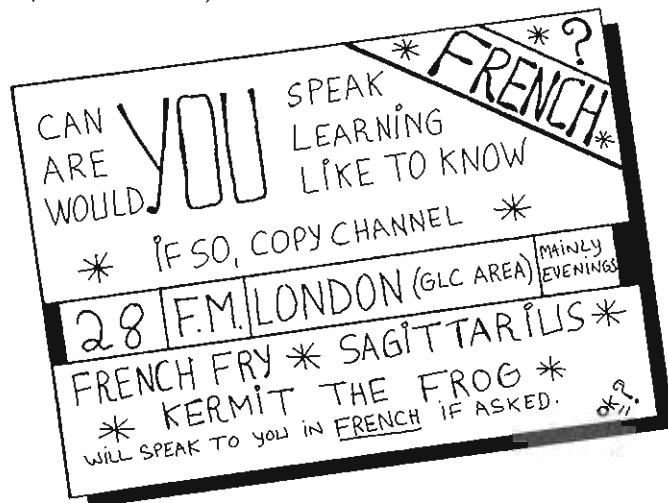 CAN
ARE
WOULD
YOU
SPEAK
LEARNING
LIKE TO KNOW
* FRENCH *
* ?
* IF SO, COPY CHANNEL *
28 F.M. LONDON (GLC AREA) MAINLY EVENINGS
FRENCH FRY * SAGITTARIUS *
* KERMIT THE FROG *
WILL SPEAK TO YOU IN FRENCH IF ASKED.